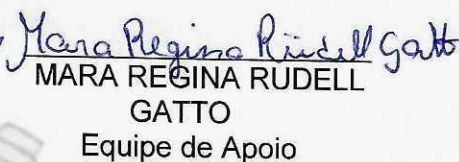 Mara Regina Rudell Gatto
MARA REGINA RUDELL
GATTO
Equipe de Apoio